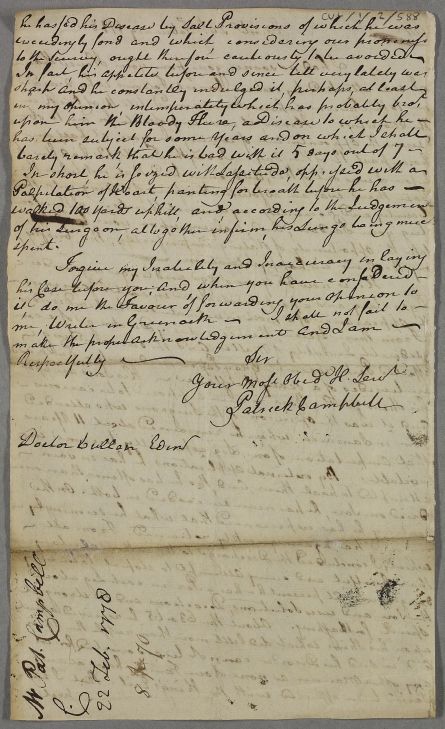 CUL/1/2/588
he has fed his Disease by Salt Provisions of which he was
exceedingly fond and which considering our proneness
to the Scurvy, ought therefore cautiously to be avoided
In fact his appetite before and since till very lately was
sharp and he constantly indulged it, perhaps, at least
in my opinion intemperately which has probably bro't
upon him the Bloody Flux, a Disease to which he
has been subject for some Years and on which I shall
barely remark that he is bad with it 5 days out of 7 —
In short he is seized with Lassitude, oppressed with a
Palpitation of Heart panting for breath before he has
walked 100 Yards uphill, and according to the Judgement
of his Surgeon, altogether infirm, his Lungs being much
spent.
Forgive my Inability and Inaccuracy in laying
his Case before you and when you have considered
it do me the Favour of forwarding your Opinion to
me, Writer in Greenock — I shall not fail to
make the proper acknowledgement and I am
Respectfully — Sir
Your Most Obed H. Serv
Patrick Campbell
Doctor Cullen Edinr
Mr Pat. Campbell
C.
22 Feb. 1778